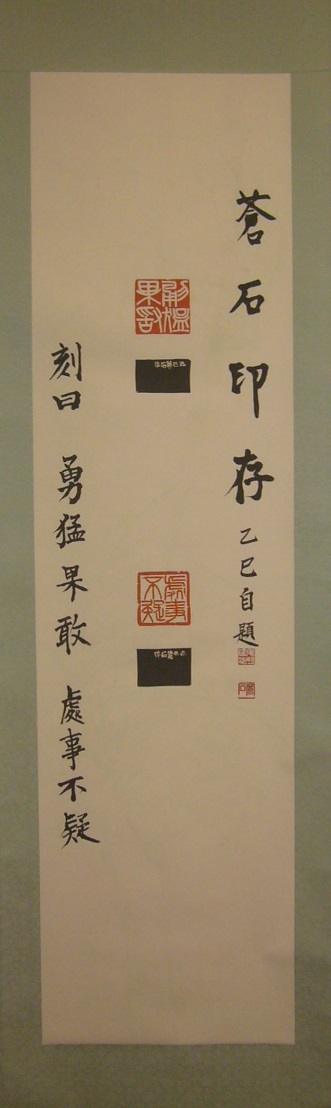 蒼石印存 乙巳自題
勇猛果敢
處事不疑
刻曰 勇猛果敢 處事不疑